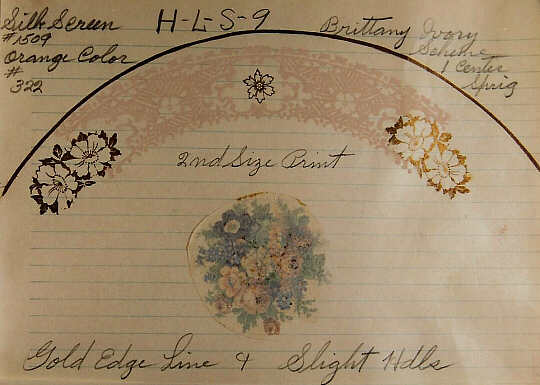 Silk Screen
#1509
Orange Color
#
322
H-L-S-9
Brittany Ivory
Scheme
1 Center
Sprig
2nd Size Print
Gold Edge Line & Slight Hdls